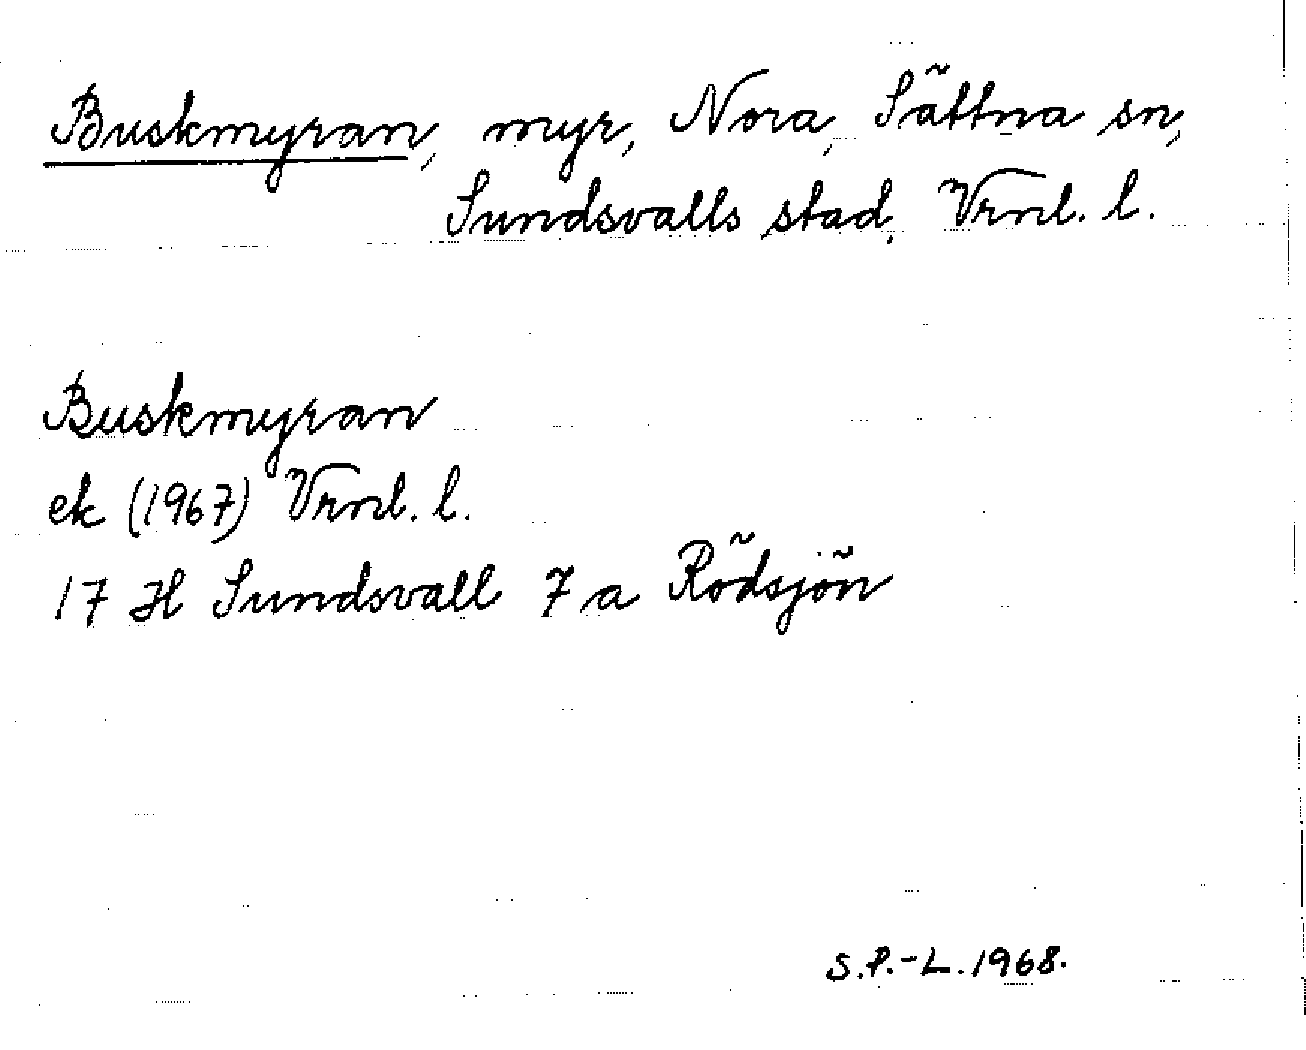 Buskmyran, myr, Nora, Sättna sn,
Sundsvalls stad, Vrnl. l.
Buskmyran
ek (1967) Vrnl. l.
17 H Sundsvall 7 a Rödsjön
S.P.-L. 1968.